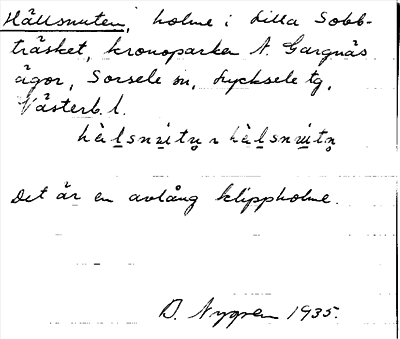 Hällsnuten, holme i Lilla Sobb-
träsket, kronoparken N. Gargnäs
ägor, Sorsele sn, Lycksele tg,
Västerb. l.
Det är en avlång klippholme.
D. Nygren 1935.